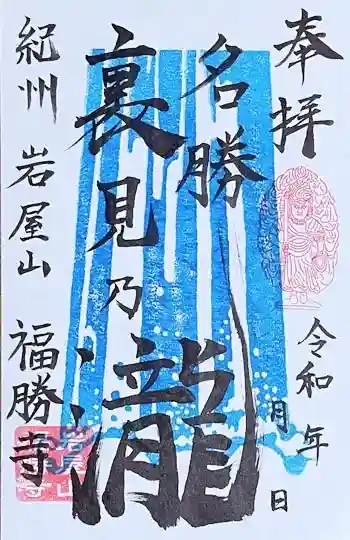 奉拝
令和 年 月 日
名勝
裏見乃瀧
紀州 岩屋山 福勝寺
岩屋山